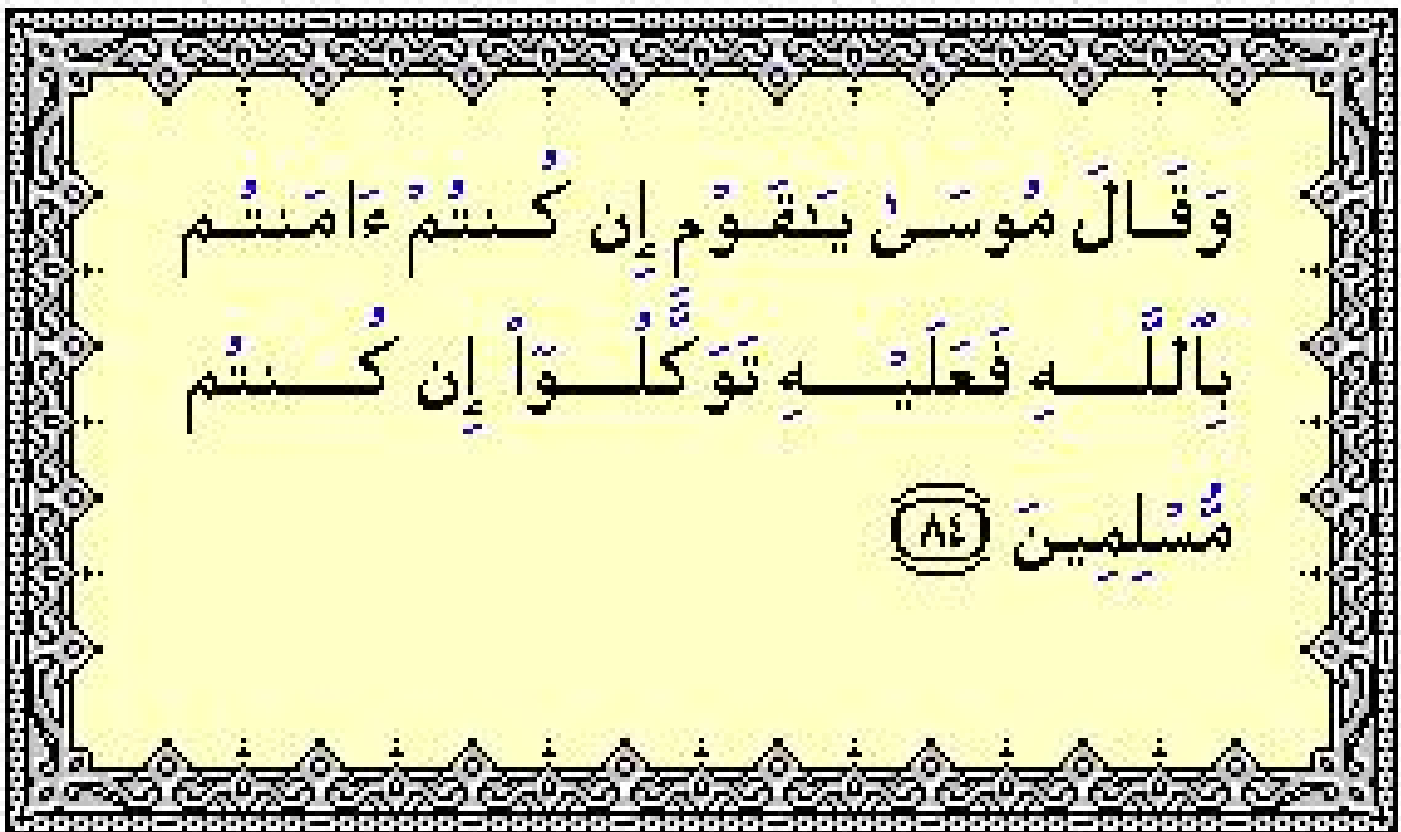 وَقَالَ مُوسَىٰ يَـٰقَوْمِ إِن كُنتُمْ ءَامَنتُم
بِٱللَّهِ فَعَلَيْهِ تَوَكَّلُوٓا۟ إِن كُنتُم
مُّسْلِمِينَ ٨٤